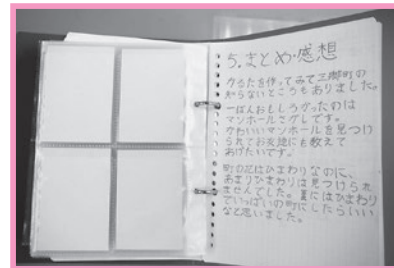 5.まとめ・感想
かるたを作ってみて三郷町の
知らないところもありました。
一ばんおもしろかったのは
マンホールさがしです。
かわいいマンホールを見つけ
られてお友達にも教えて
あげたいです。
町の花はひまわりなのに、
あまりひまわりは見つけられ
ませんでした。夏にはひまわり
でいっぱいの町にしたらいい
なと思いました。